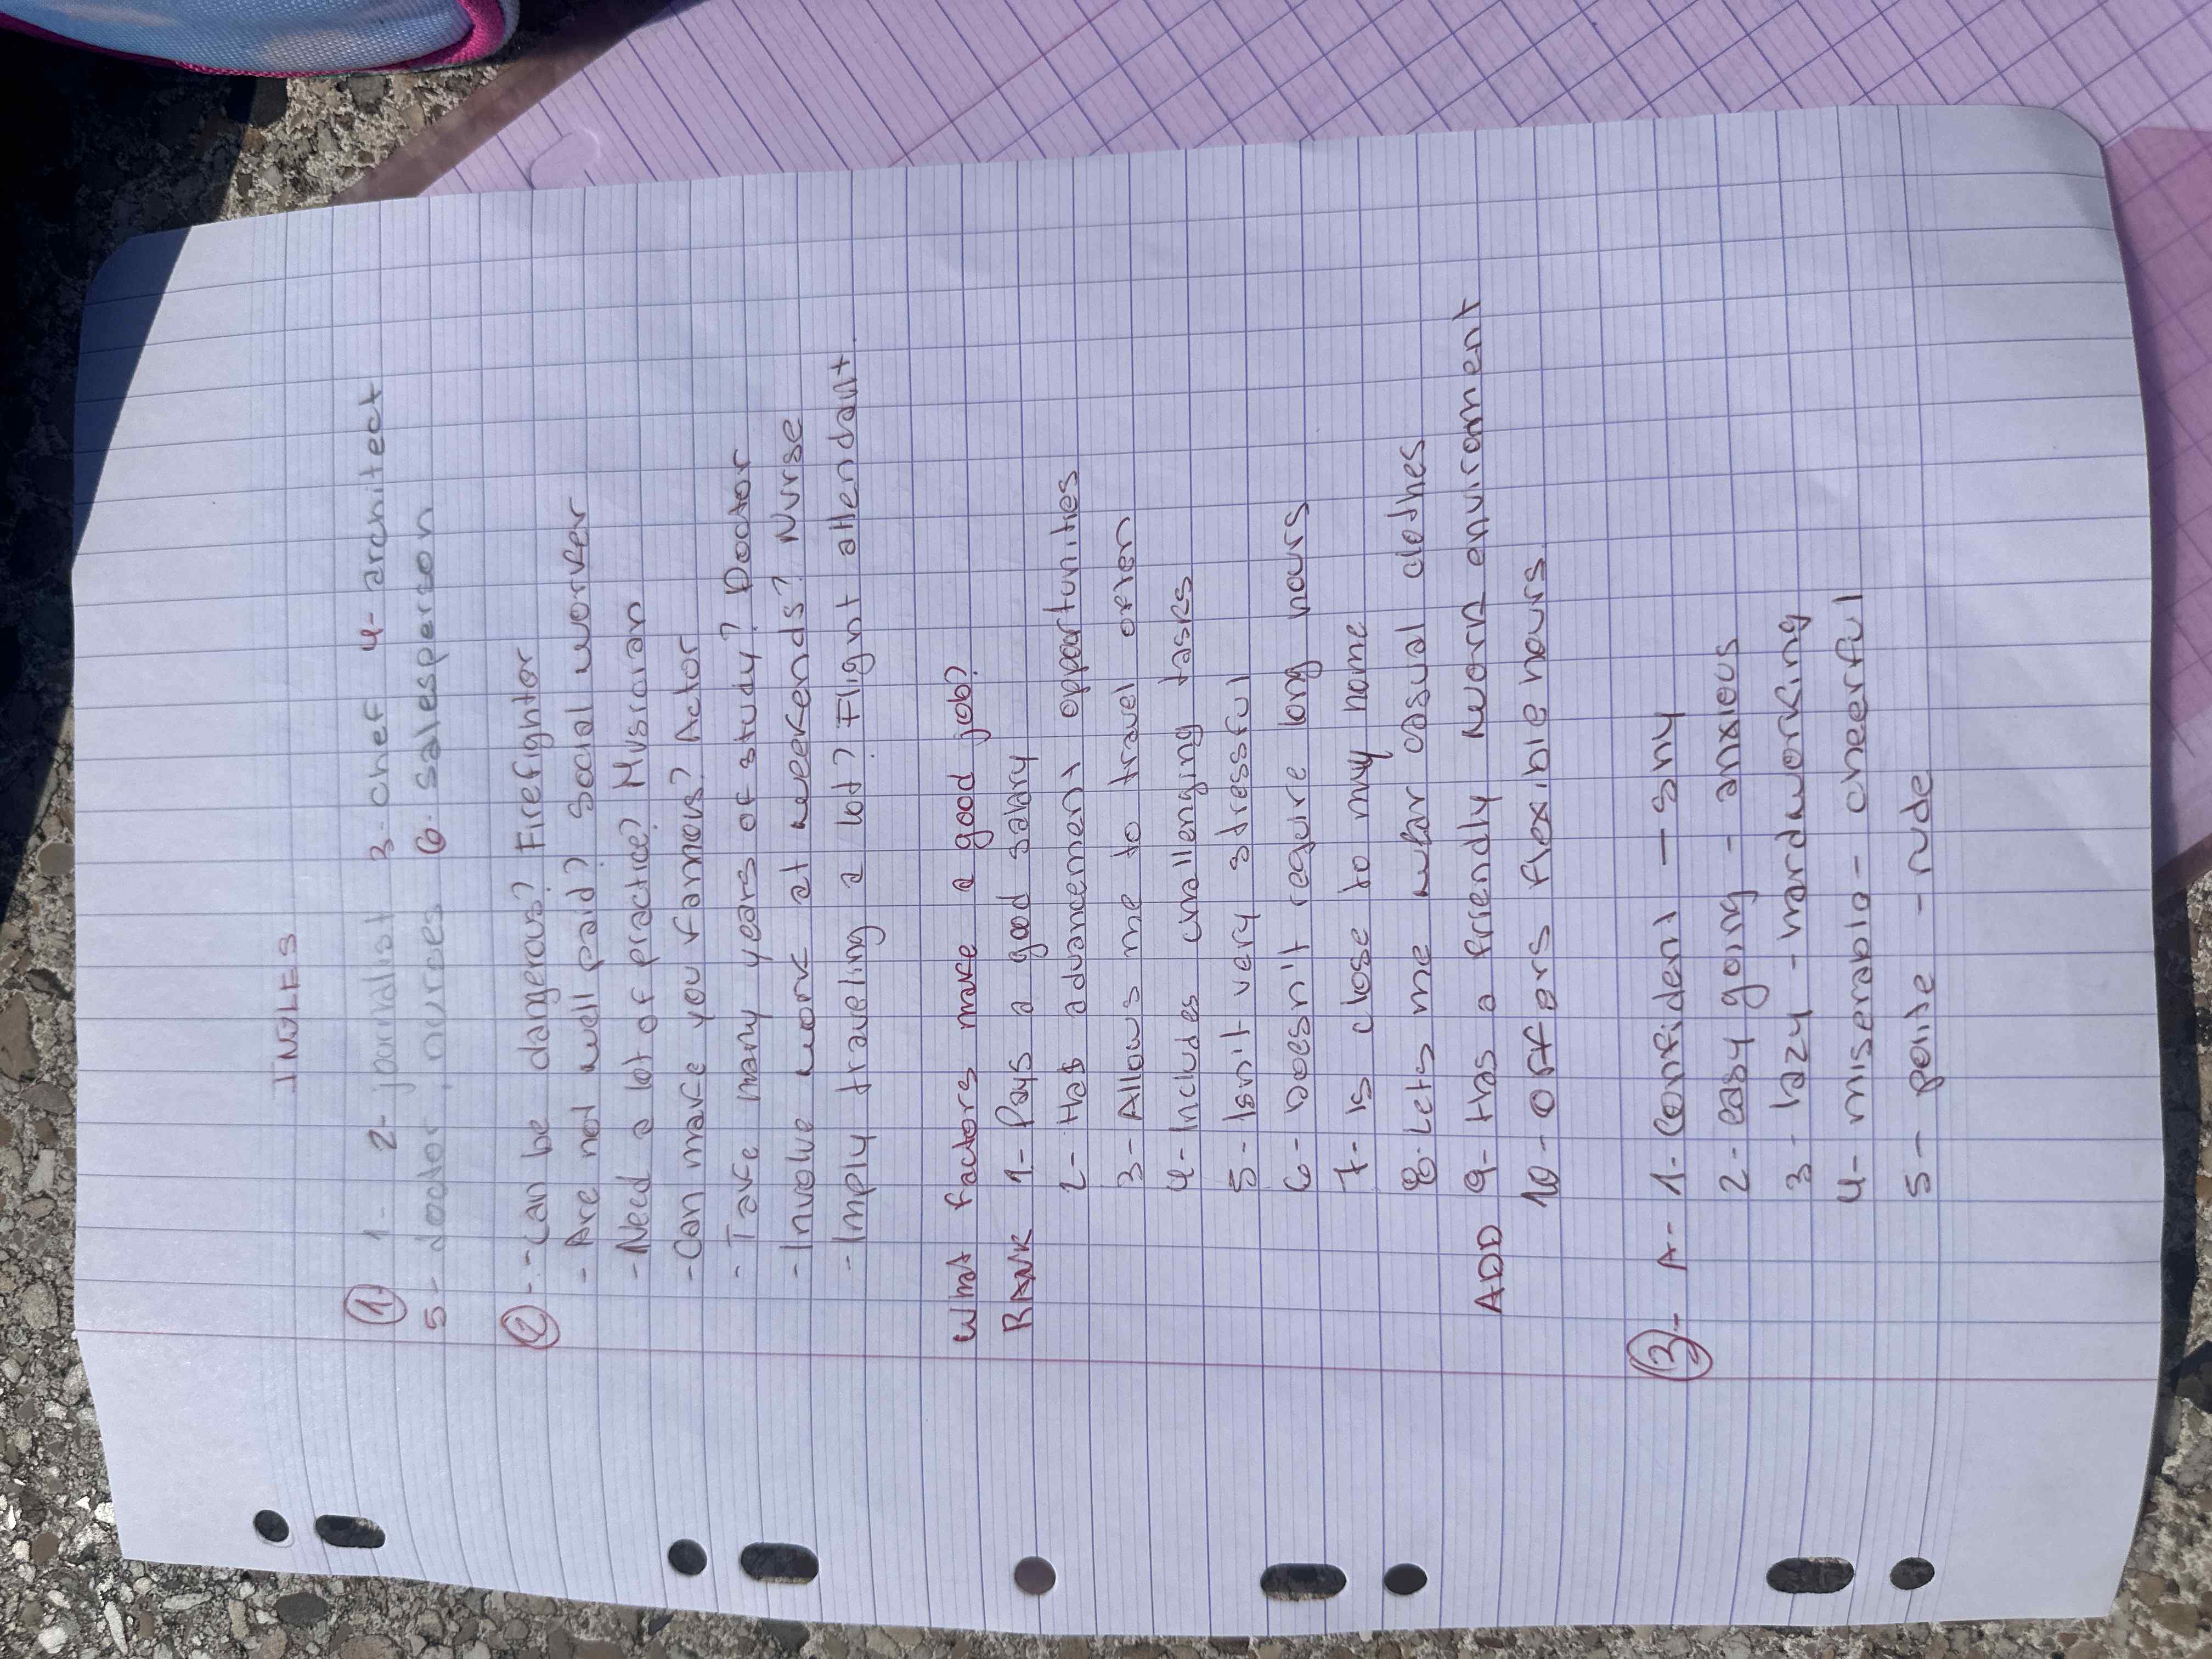 INGLES
① 1- 2- journalist 3- chef 4- architect
5- doctor, nurses 6- salesperson
② - - Can be dangerous? Firefighter
- Are not well paid? Social worker
- Need a lot of practice? Musician
- Can make you famous? Actor
- Take many years of study? Doctor
- Involve work at weekends? Nurse
- Imply traveling a lot? Flight attendant.
What factors make a good job?
RANK 1- Pays a good salary
2- Has advancement opportunities
3- Allows me to travel often
4- Includes challenging tasks
5- Isn't very stressful
6- Doesn't require long hours
7- Is close to my home
8- Lets me wear casual clothes
ADD 9- Has a friendly work environment
10- Offers flexible hours.
③- A- 1- Confident - shy
2- easy going - anxious
3- lazy - hardworking
4- miserable - cheerful
5- polite - rude